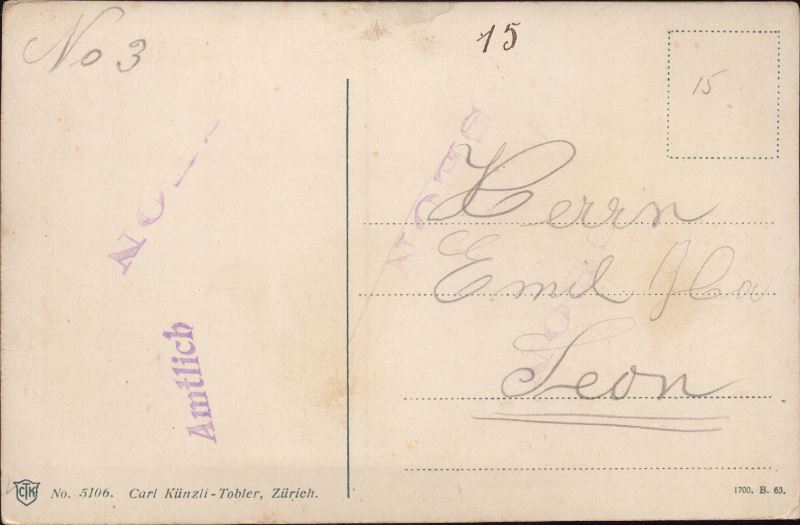 No 3
15
15
NO
NOTE
Amtlich
Herrn
Emil
Seon
CTK No. 5106. Carl Künzli-Tobler, Zürich.
1700. B. 63.